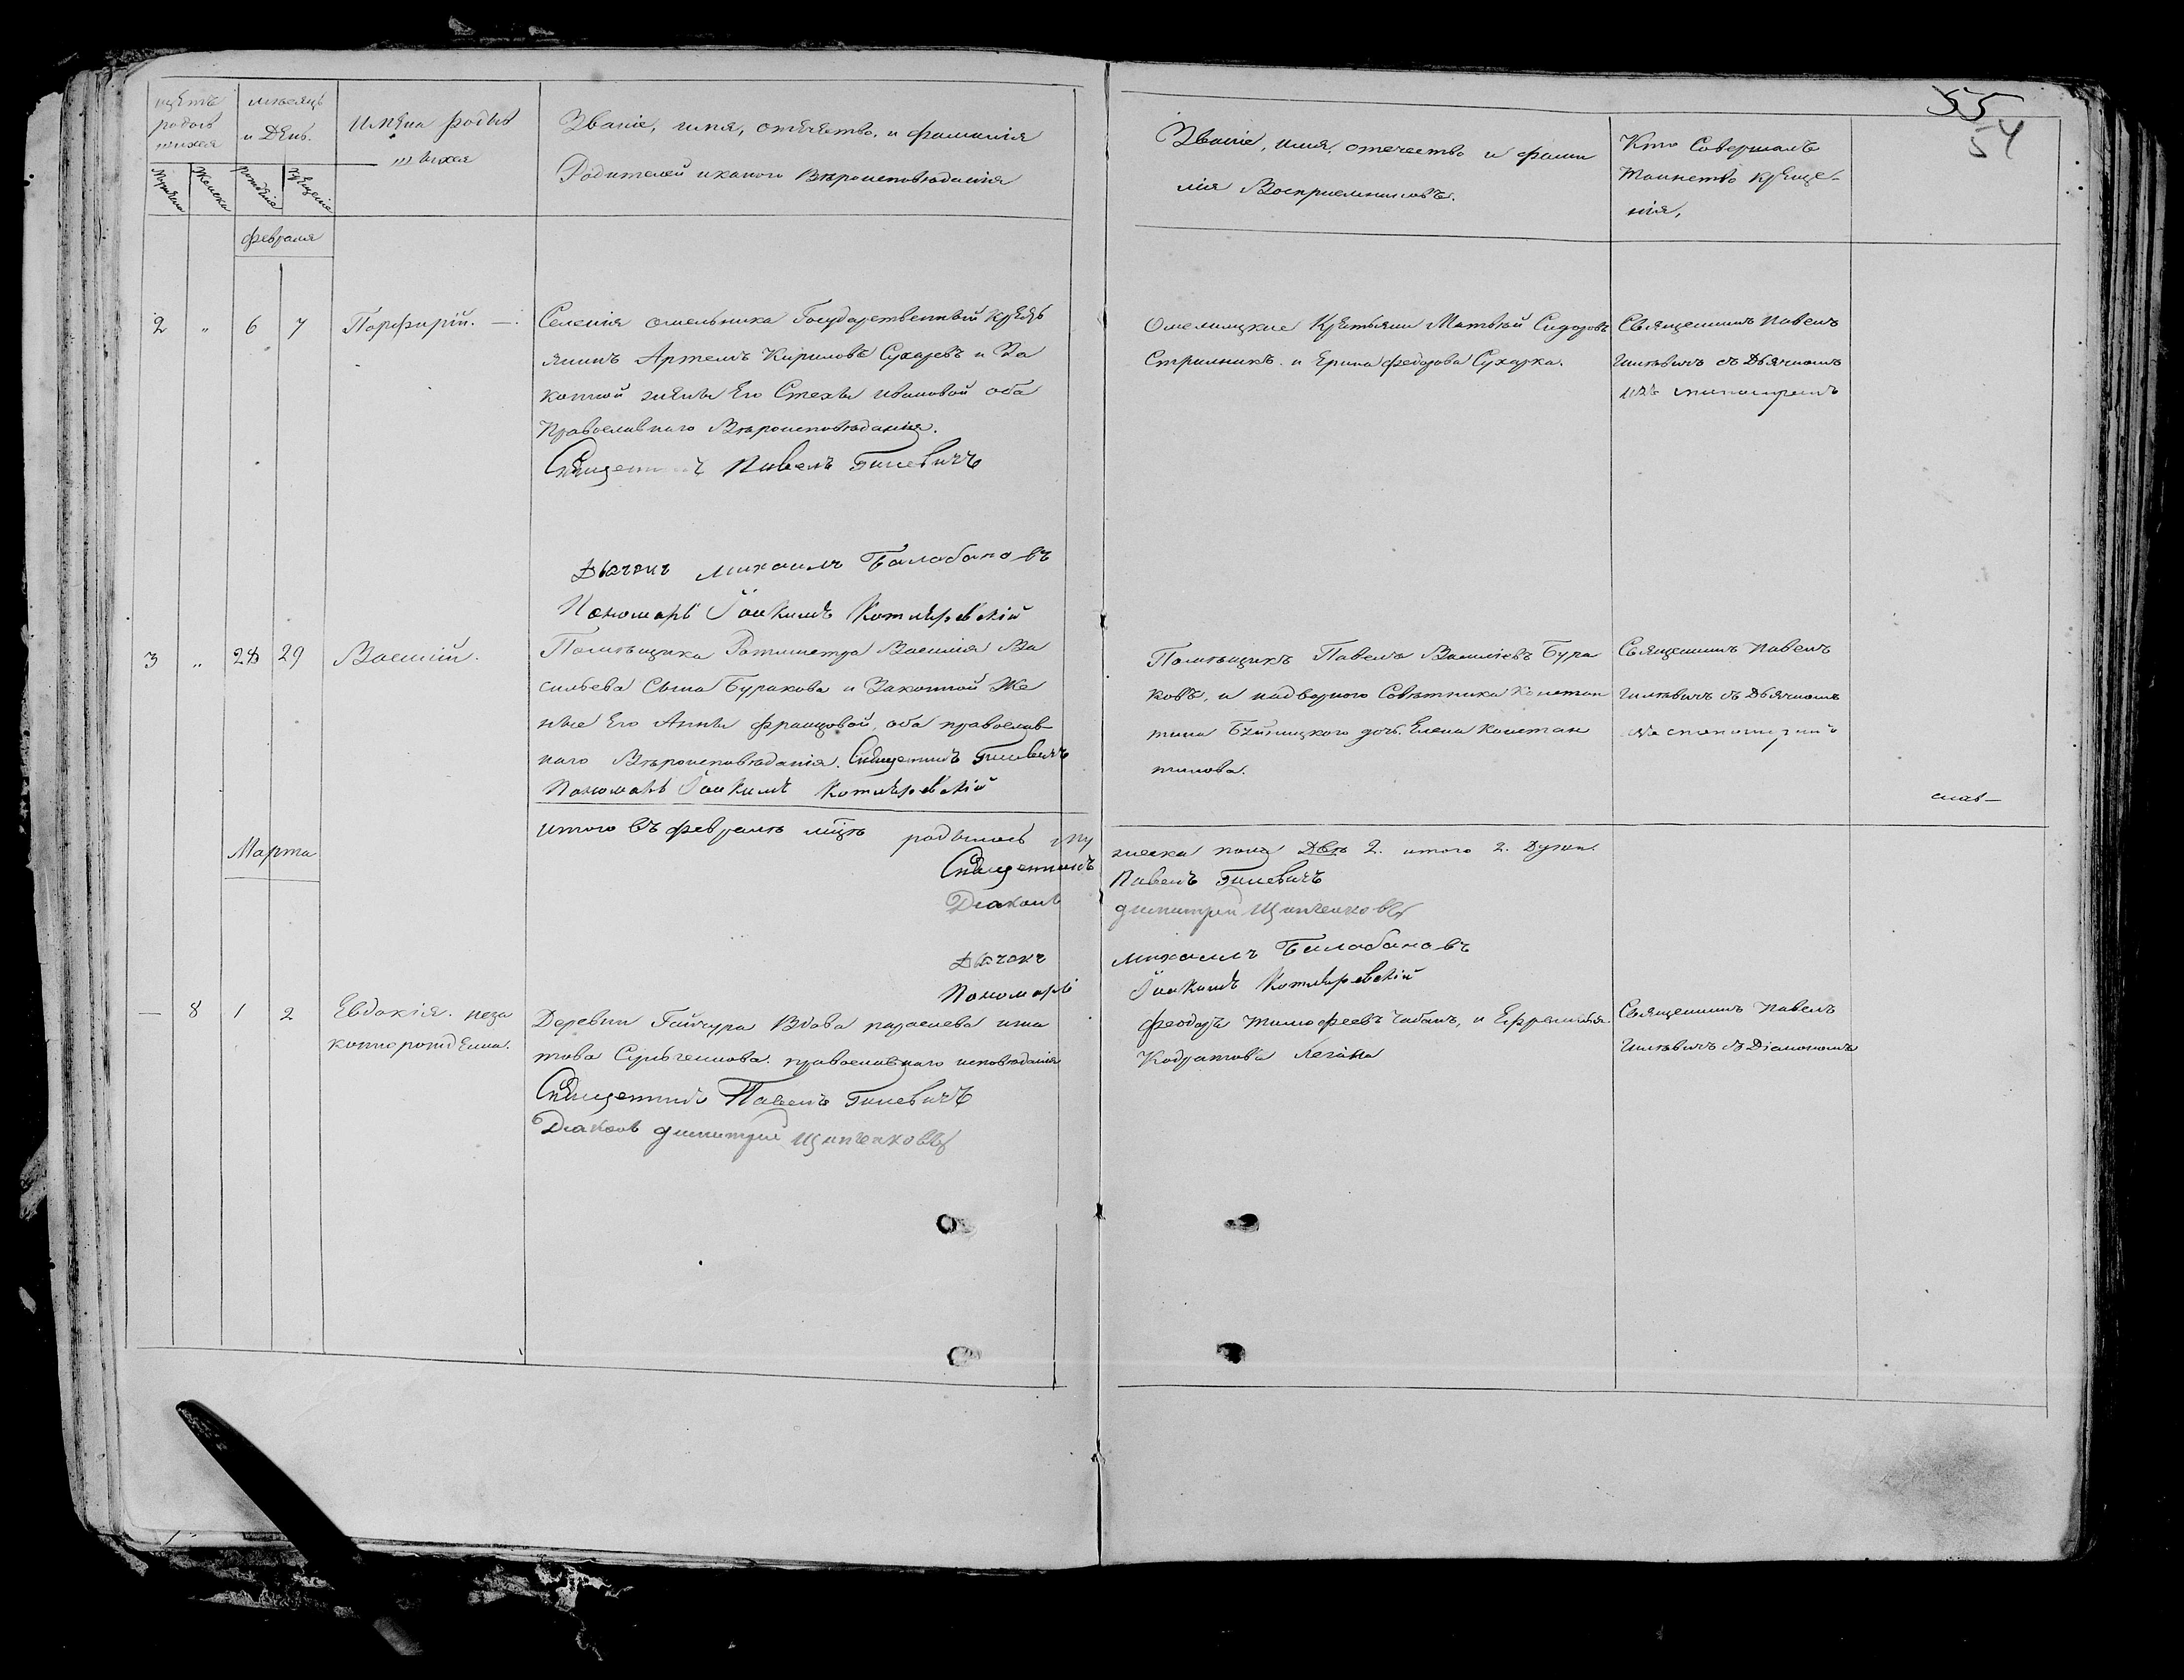 55
54
щетъ родов шихся
мѣсяцъ и День.
Имена родив
шихся
Званіе, имя, отечество, и фамилія
Родителей и какого Вѣроисповѣданія
Званіе, имя, отечество и фами
лія Воспріемниковъ.
Кто Совершалъ
Таинство Креще-
нія,
Мужеска
Женска
рожденіе
Крещеніе
февраля
2 „ 6 7 Порфирій. —
Селенія Омельника Государственный Крестъ
янинъ Артемъ Кириловъ Сухаревъ и За
конной жены Его Стехы Ивановой оба
Православнаго Вѣроисповѣданія.
Священникъ Павелъ Гилевичъ
Дьячокъ Михаилъ Балабановъ
Пономарь Іоакимъ Котляревскій
Омелницкие Крестьяни Матвѣй Сидоровъ
Стрилникъ. и Ерина Федорова Сухарка.
Священникъ Павелъ
Гилѣвичъ съ Дьячкомъ
и пономремъ
3 „ 28 29 Василій.
Помѣщика Ротмистра Василія Ва
сильева Сына Буракова и Законной Же
ные Его Анны францовой, оба православ-
наго Вѣроисповѣданія. Священникъ Гилевичъ
Пономарь Іоакимъ Котляревскій
Помѣщикъ Павелъ Василіевъ Бура
ковъ, и надворного Совѣтника Констан
тина дочь. Елена Констан
тинова.
Священникъ Павелъ
Гилѣвичъ съ Дьячкомъ
Итого въ февралѣ мцѣ родилось му
жеска пола Двѣ 2. итого 2. Души.
Марта
Священникъ Павелъ Гилевичъ
Діаконъ Димитрій Щипченковъ
Дьячокъ Михаилъ Балабановъ
Пономарь Іоакимъ Котляревскій
— 8 1 2 Евдокія. неза
коннорожденна.
Деревни Гайчура Вдова Параскева Игна
това православнаго исповѣданія
Священникъ Павелъ Гилевичъ
Діаконъ Димитрій Щипченковъ
Феодоръ Тимофеевъ Чабанъ, и Ефросинія
Кодратова
Священникъ Павелъ
Гилѣвичъ съ Діакономъ